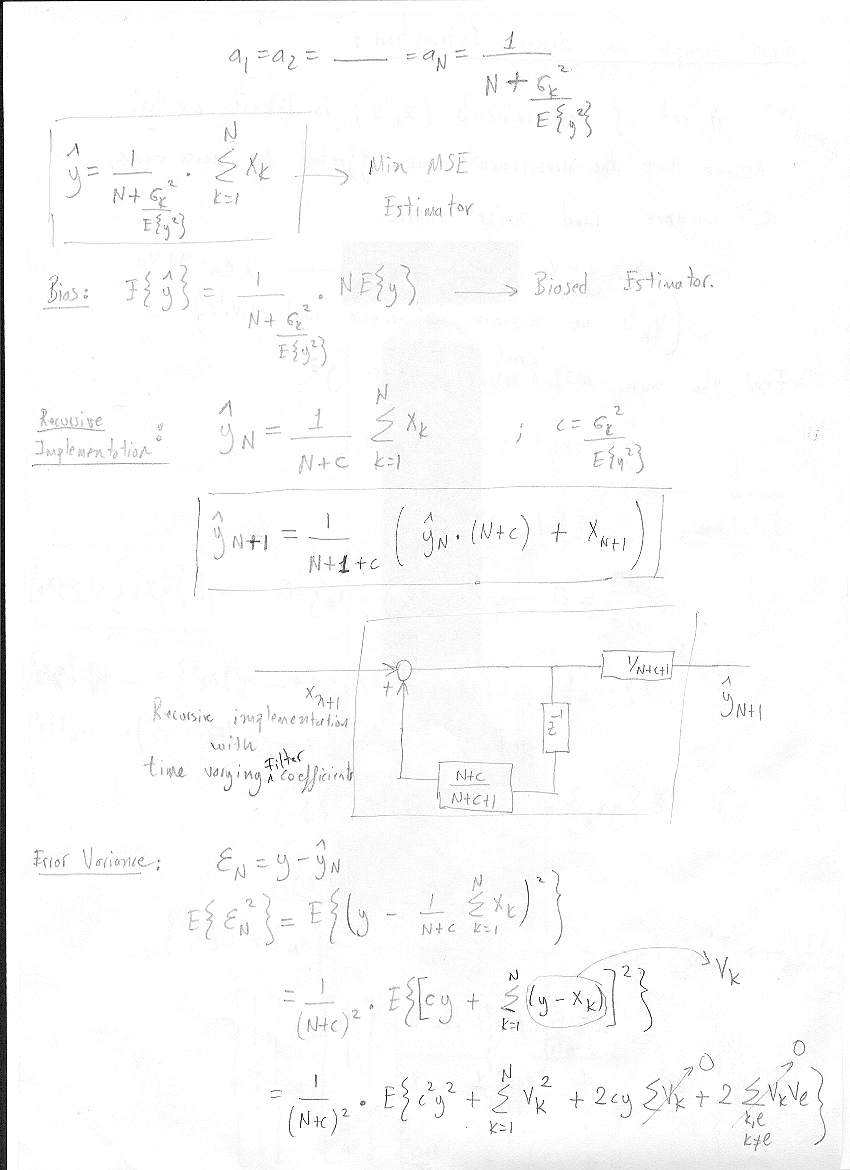 a₁ = a₂ = ___ = a_N = 1 / (N + σ_k² / E{y²})
ŷ = 1 / (N + σ_k² / E{y²}) · Σ_{k=1}^{N} x_k → Min MSE
Estimator
Bias: E{ŷ} = 1 / (N + σ_k² / E{y²}) · N E{y} → Biased Estimator.
Recursive
Implementation: ŷ_N = 1 / (N+c) Σ_{k=1}^{N} x_k ; c = σ_k² / E{y²}
ŷ_{N+1} = 1 / (N+1+c) ( ŷ_N · (N+c) + x_{N+1} )
1/N+c+1
+
x_{λ+1}
ŷ_{N+1}
z⁻¹
Recursive implementation
with
time varying ^Filter coefficients
N+c / N+c+1
Error Variance: ε_N = y - ŷ_N
E{ε_N²} = E{(y - 1 / (N+c) Σ_{k=1}^{N} x_k)²}
= 1 / (N+c)² · E{[cy + Σ_{k=1}^{N} (y - x_k)]²} → V_k
= 1 / (N+c)² · E{c²y² + Σ_{k=1}^{N} V_k² + 2cy ΣV_k → 0 + 2 Σ_{k,e k≠e} V_k V_e → 0}